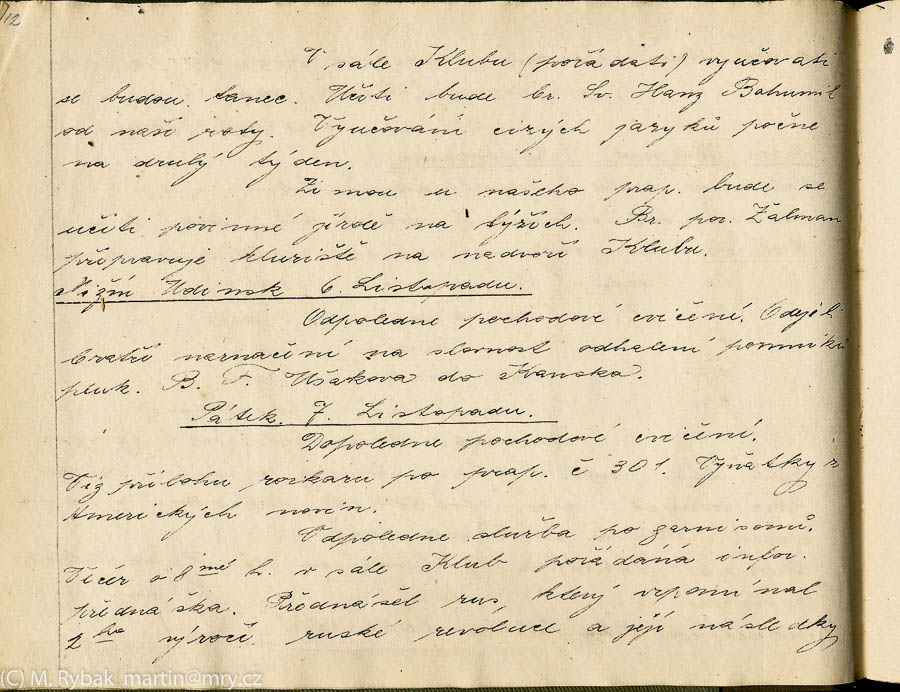 12
V sále Klubu (pořádati) vyučovati
se budou tanec. Učiti bude br. Sv. Hanz Bohumil
od naší roty. Vyučování cizých jazyků počne
na druhý týden.
Zimou u našeho prap. bude se
učiti povinné jízdě na lýžích. Br. por. Žalman
připravuje kluziště na nadvoří Klubu.
Nižní Udinsk 6. Listopadu.
Odpoledne pochodové cvičení. Odjeli
bratří naznačení na slavnost odhalení pomníku
pluk. B. F. Ušakova do Kanska.
Pátek. 7. Listopadu.
Dopoledne pochodové cvičení.
Viz přílohu rozkazu po prap. č 301. Výňatky z
Amerických novin.
Odpoledne služba po garnisoně.
Večer o 8mé h. v sále Klub pořádáná infor.
přednáška. Přednášel rus, který vzpomínal
2ho výročí ruské revoluce a její následky
(C) M. Rybak, martin@mry.cz